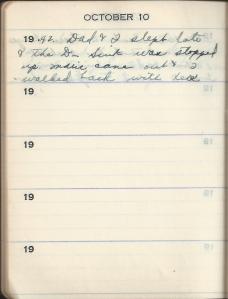 OCTOBER 10
1942. Dad & I slept late
& the D– Sink was stopped
up Marie came out & I
walked back with her
19
19
19
19